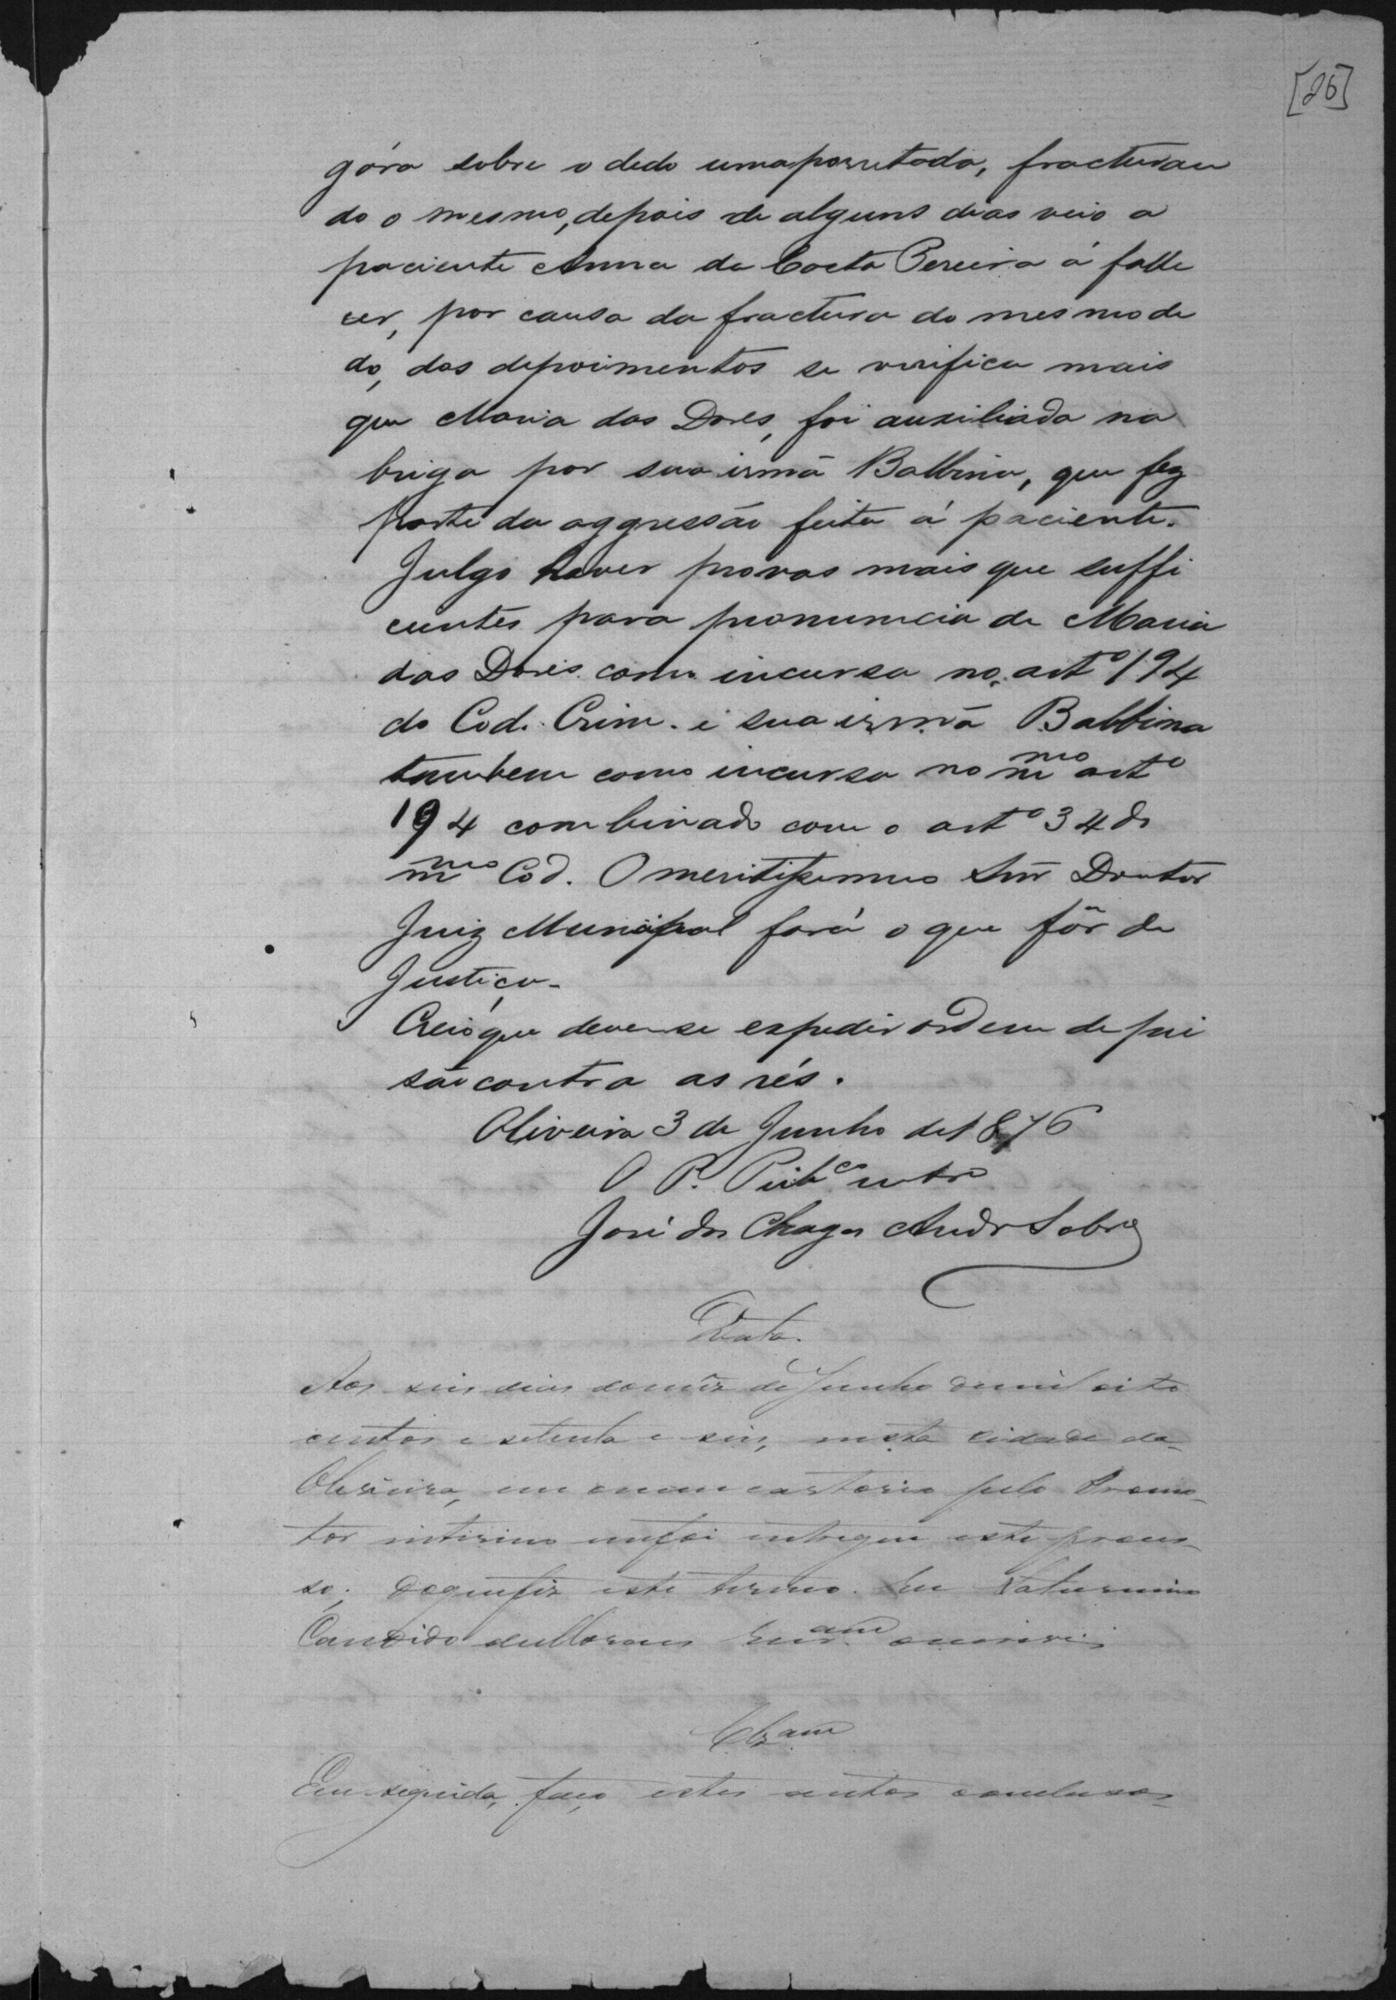 [26]
góra sobre o dedo uma porretada, fracturan
do o mesmo, depois de alguns dias veio a
paciente Anna da Costa Pereira á falle
cer, por causa da fractura do mesmo de
do, dos depoimentos se verifica mais
que Maria das Dores, foi auxiliada na
briga por sua irmã Balbina, que fez
parte da aggressão feita á paciente.
Julgo haver provas mais que suffi
cientes para pronuncia de Maria
das Dores como incursa no art.º 194
do Cod. Crim. e sua irmã Balbina
tambem como incursa no mmo artº
194 combinado com o artº 34 do
mmo Cod. O meritissimo Snr Doutor
Juiz Municipal fará o que fôr de
Justiça.
Creio que deve-se expedir ordem de pri
são contra as rés.
Oliveira 3 de Junho de 1876
O P. Pubco intro
José das Chagas Andr Sobro
Data.
Aos seis dias do mez de Junho de mil oito
centos e setenta e seis, nesta cidade da
Oliveira, em meu cartorio pelo Promo-
tor interino me foi entregue este proces-
so; do que fiz este termo. Eu Saturnino
Candido de Moraes Escram o escrevi
Clzam
Em seguida, faço estes autos conclusos